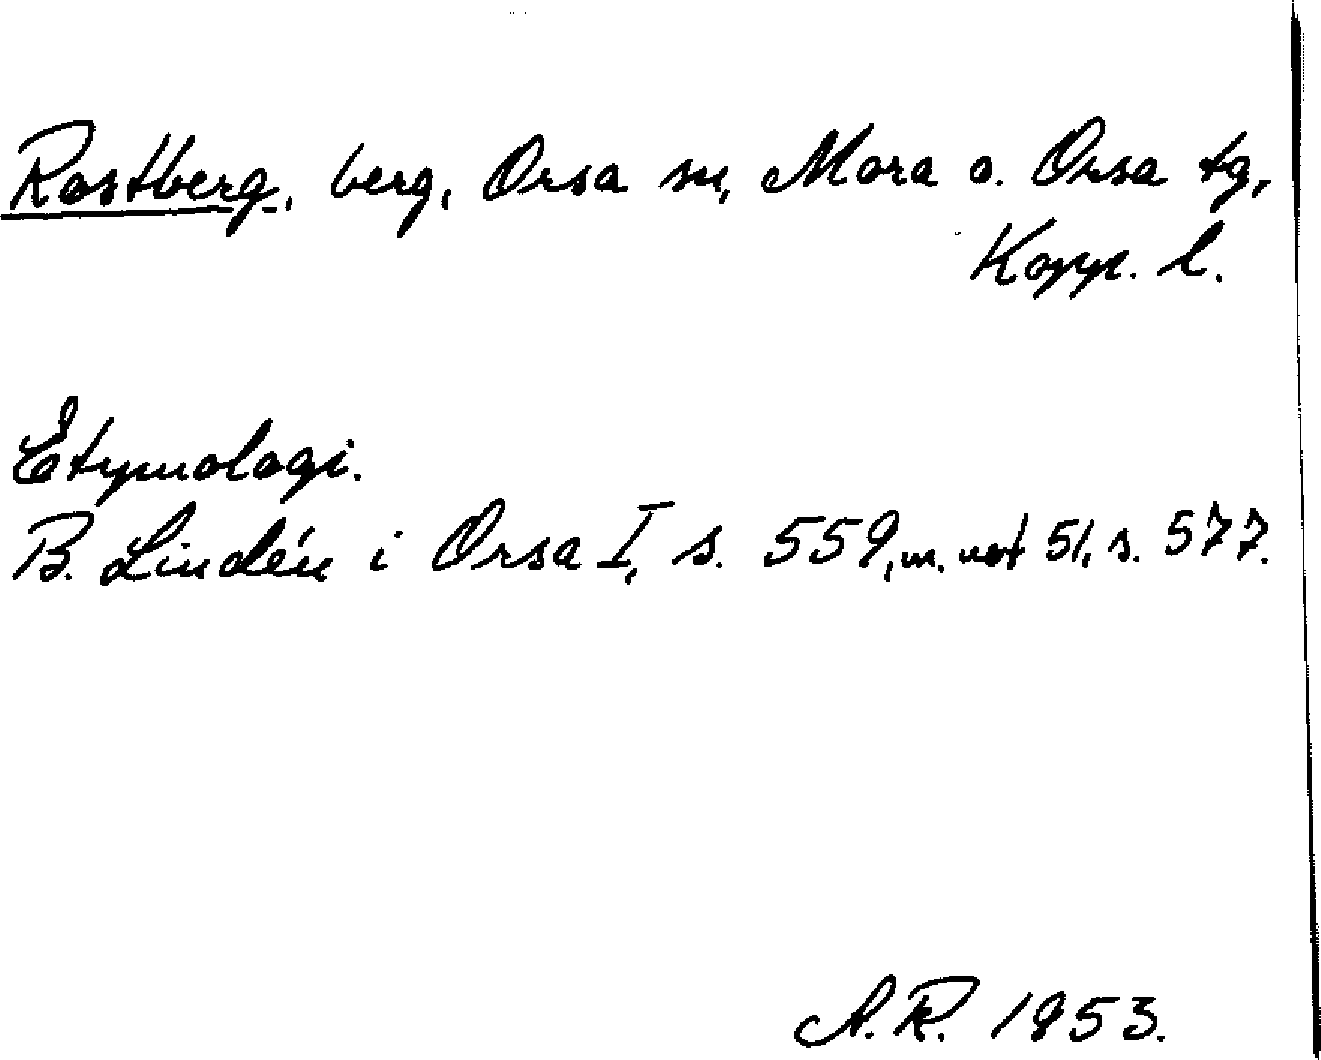 Rostberg, berg, Orsa sn, Mora o. Orsa tg,
Kopp. l.
Etymologi.
B. Lindén i Orsa I, s. 559, m. not 51, s. 577.
A.R. 1953.